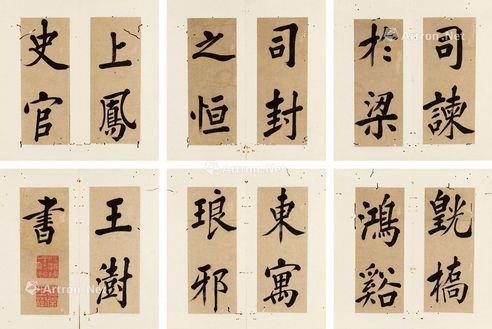 司諫
於梁
司封
之恒
上鳳
史官
鴻谿
東寓
琅邪
王澍
書
Artron.Net
Artron.Net
Artron.Net
Artron.Net
Artron.Net